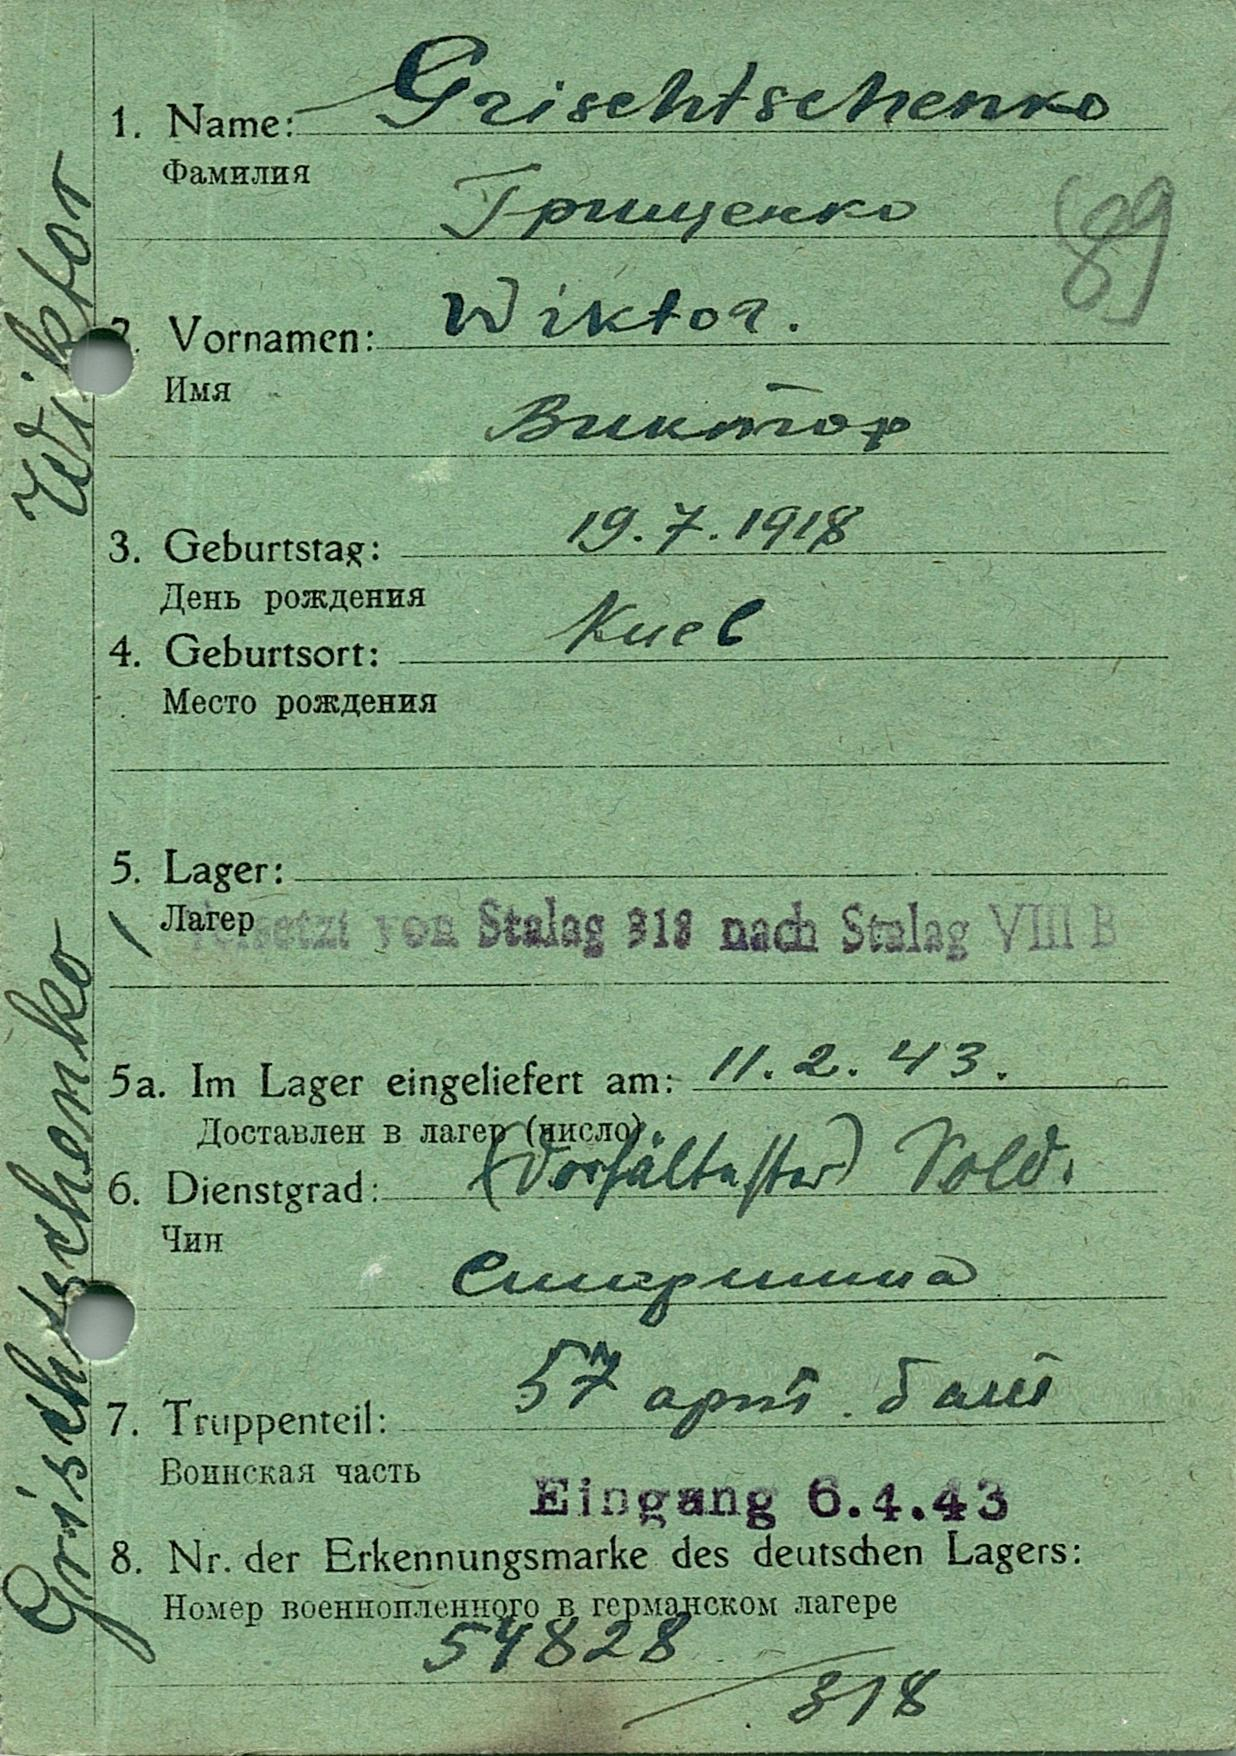 1. Name: Grischtschenko
Фамилия
Грищенко
89
2. Vornamen: Wiktor.
Имя
Виктор
3. Geburtstag: 19.7.1918
День рождения
4. Geburtsort: Киев
Место рождения
5. Lager:
Лагер
Versetzt von Stalag 318 nach Stalag VIII B
5a. Im Lager eingeliefert am: 11.2.43.
Доставлен в лагер (число)
6. Dienstgrad: Sold.
Чин
Старшина
7. Truppenteil: 57 арт. бат
Воинская часть
Eingang 6.4.43
8. Nr. der Erkennungsmarke des deutschen Lagers:
Номер военнопленного в германском лагере
54828
/318
Grischtschenko Wiktor